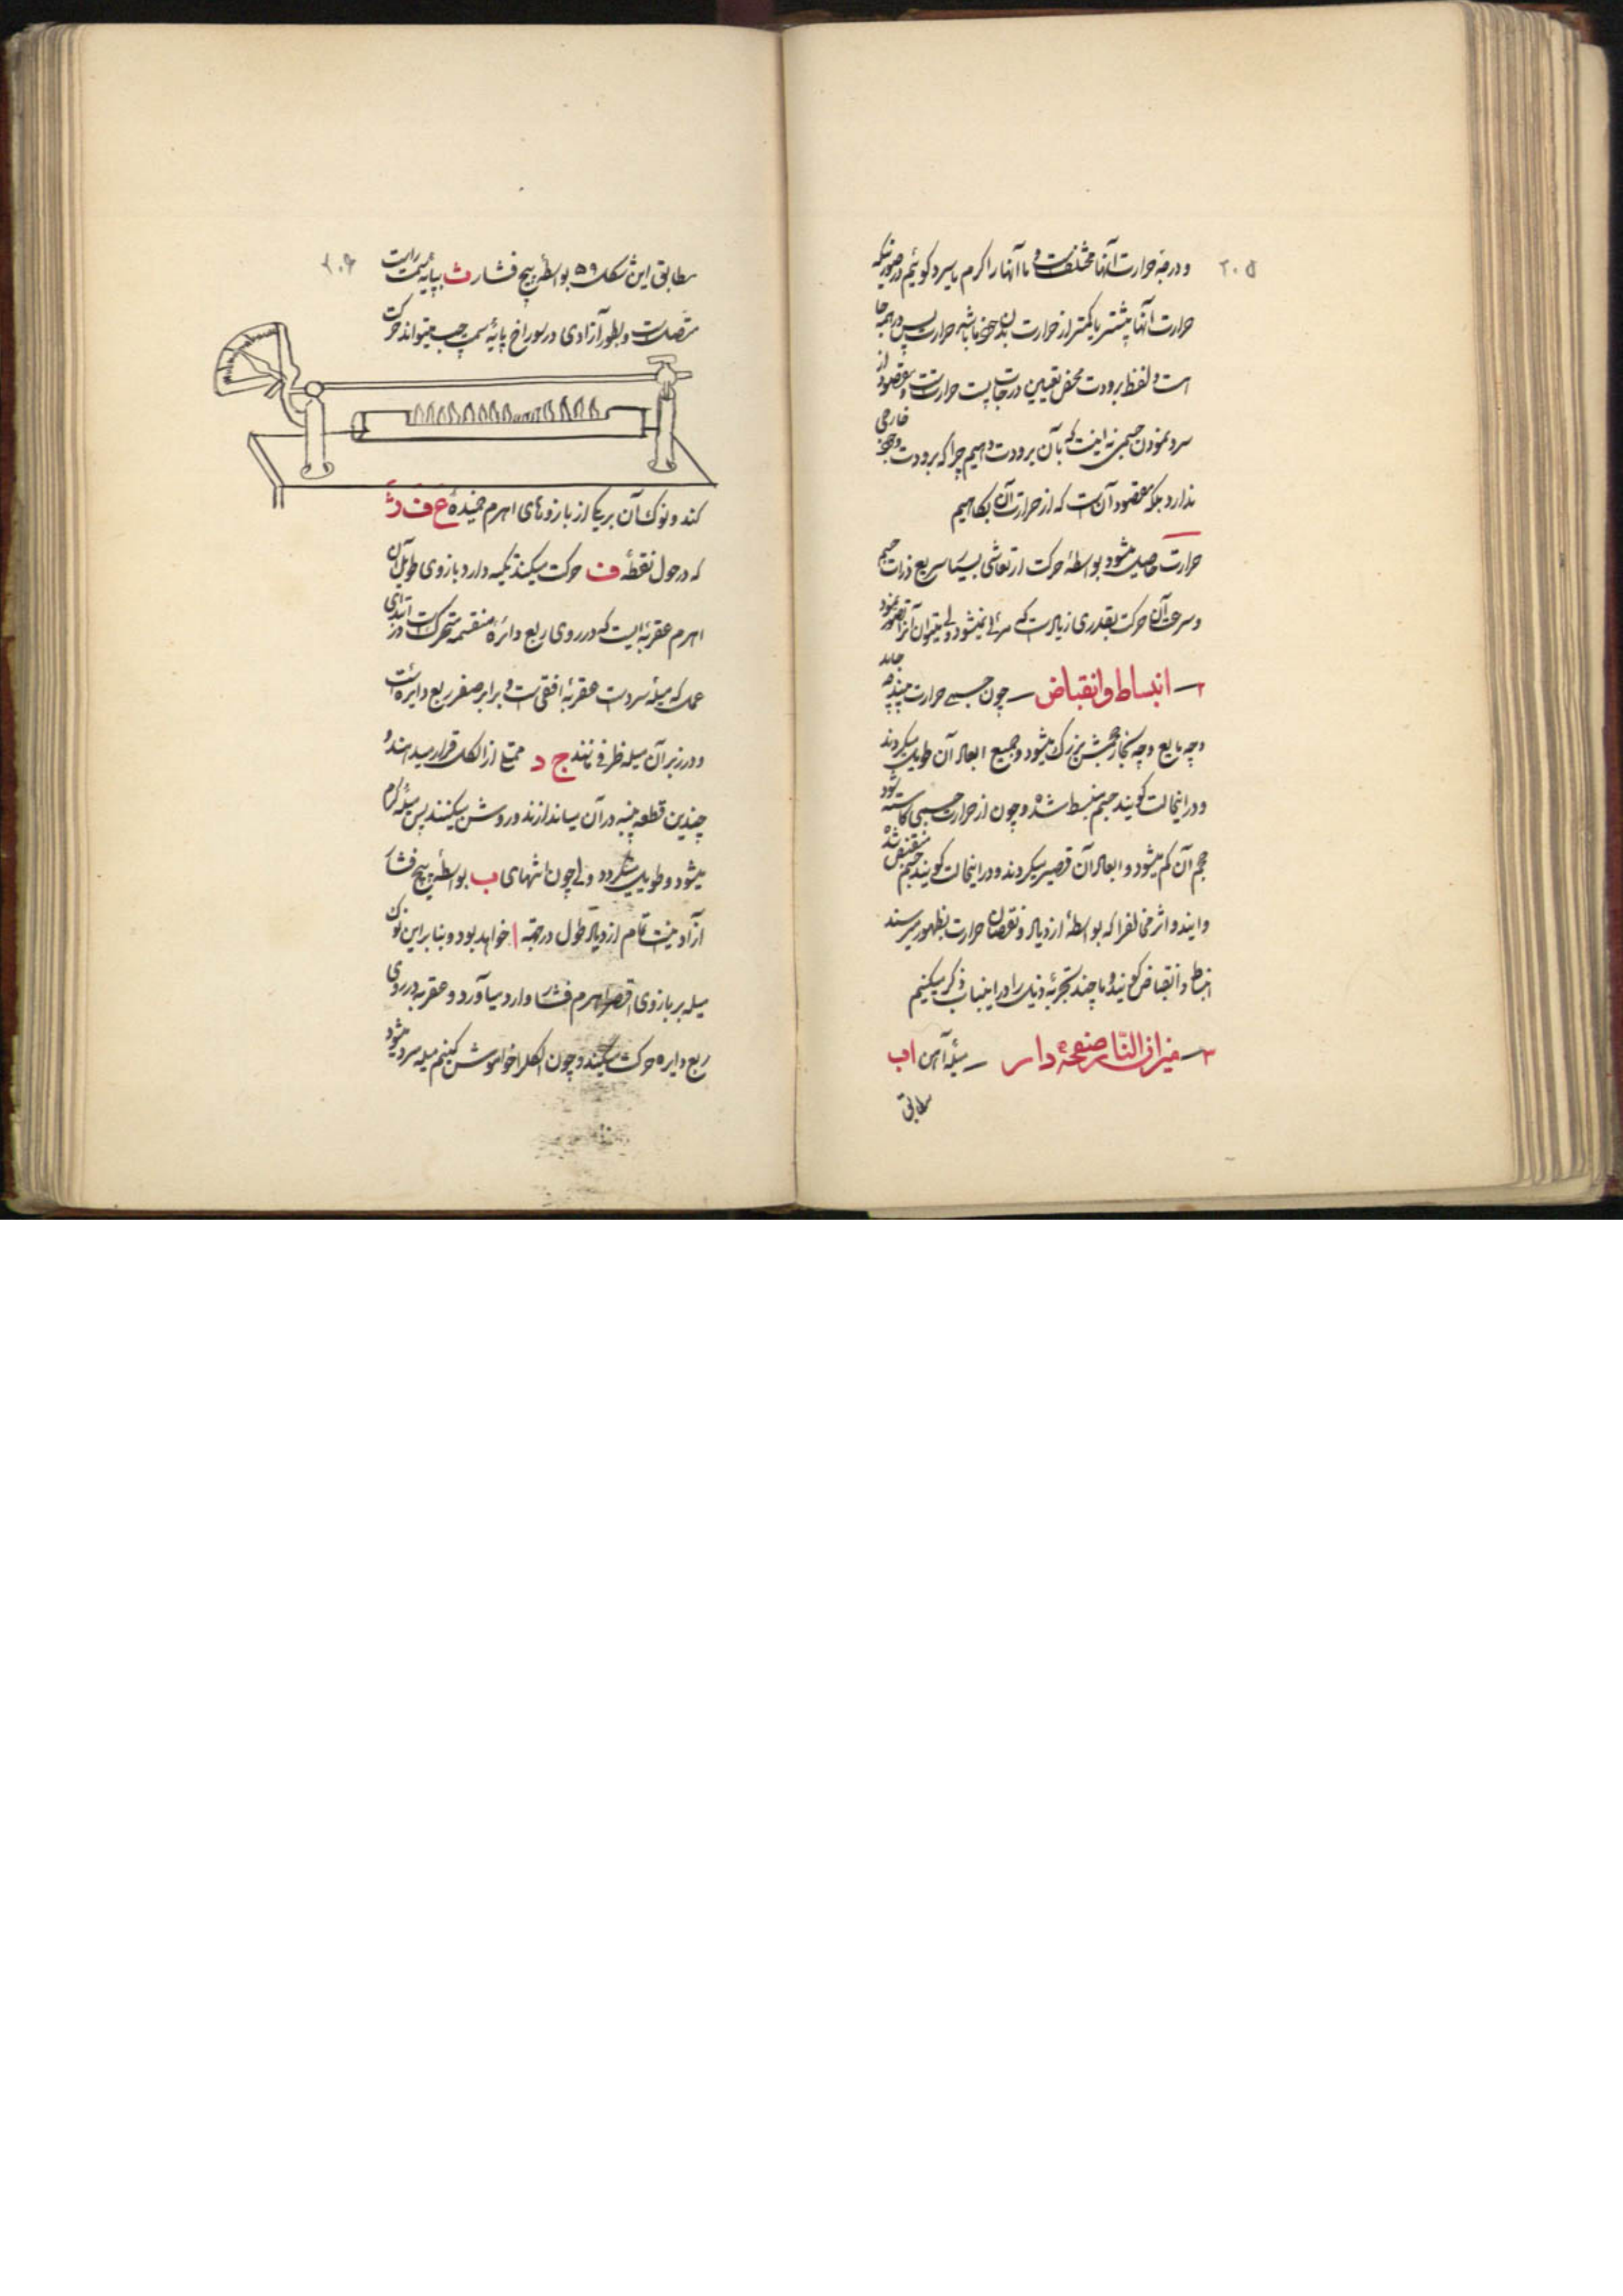 ۲۰۵
و درجهٔ حرارت آنها مختلفست و ما آنها را گرم یا سرد گوئیم در صورتیکه
حرارت آنها بیشتر یا کمتر از حرارت بدن خود ما باشد حرارت پس در همه جا
است و لفظ برودت محض تعیین درجات پست حرارتست و مقصود از
سرد نمودن جسمی نه اینست که بآن برودت دهیم چرا که برودت وجود خارجی
ندارد بلکه مقصود آن است که از حرارت آن بکاهیم
حرارت حاصل میشود بواسطهٔ حرکت ارتعاشی بسیار سریع ذرات جسم
و سرعت آن حرکت بقدری زیاد است که مرئی نمیشود ولی میتوان آنرا تصور نمود
۲ــ انبساط و انقباض ــ چون جسمی حرارت بیند چه جامد
و چه مایع و چه بخار حجمش بزرگ میشود و جمیع ابعاد آن طویل میگردند
و در اینحالت گویند جسم منبسط شده و چون از حرارت جسمی کاسته شود
حجم آن کم میشود و ابعاد آن قصیر میگردند و در اینحالت گویند جسم منقبض شده
و ایندو اثر مخالف را که بواسطهٔ ازدیاد و نقصان حرارت بظهور میرسند
انبساط و انقباض گویند و ما چند تجربهٔ ذیل را در اینباب ذکر میکنیم
۳ــ میزان النار صفحه دار ــ میلهٔ آهن اب
مطابق
۲۰۶
مطابق این شکل ۵۹ بواسطهٔ پیچ فشار ث بپایهٔ سمت راست
متصل است و بطور آزادی در سوراخ پایهٔ سمت چپ میتواند حرکت
کند و نوک آن بر یکی از بازوهای اهرم خمیدهٔ ع ف د
که در حول نقطهٔ ف حرکت میکند تکیه دارد و بازوی طویل آن
اهرم عقربهٔ ایست که در روی ربع دائرهٔ منقسمه متحرک است در ابتدای
عمل که میله سرد است عقربهٔ افقی است و برابر صفر ربع دایره است
و در زیر آن میله ظرفی مانند ج د ممتلی از الکل قرار میدهند و
چندین قطعه پنبه در آن میاندازند و روشن میکنند پس میله گرم
میشود و طویل میگردد ولی چون انتهای ب بواسطهٔ پیچ فشار
آزاد نیست تمام ازدیاد طول در جهة ا خواهد بود و بنا براین نوک
میله بر بازوی اقصر اهرم فشار وارد میآورد و عقربه در روی
ربع دایره حرکت میکند و چون الکل را خواموش کنیم میله سرد میشود